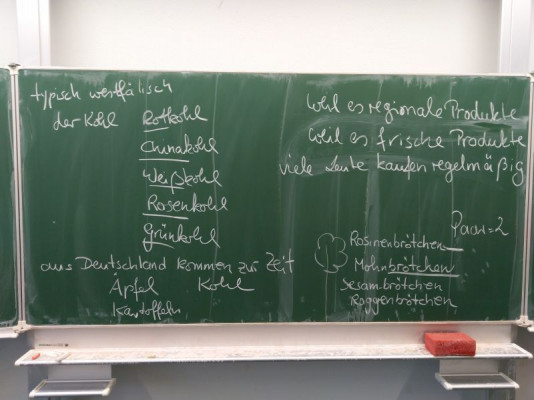 typisch westfälisch
der Kohl Rotkohl
Chinakohl
Weißkohl
Rosenkohl
Grünkohl
aus Deutschland kommen zur Zeit
Äpfel Kohl
Kartoffeln
weil es regionale Produkte
weil es frische Produkte
viele Leute kaufen regelmäßig
Paar=2
Rosinenbrötchen
Mohnbrötchen
Sesambrötchen
Roggenbrötchen